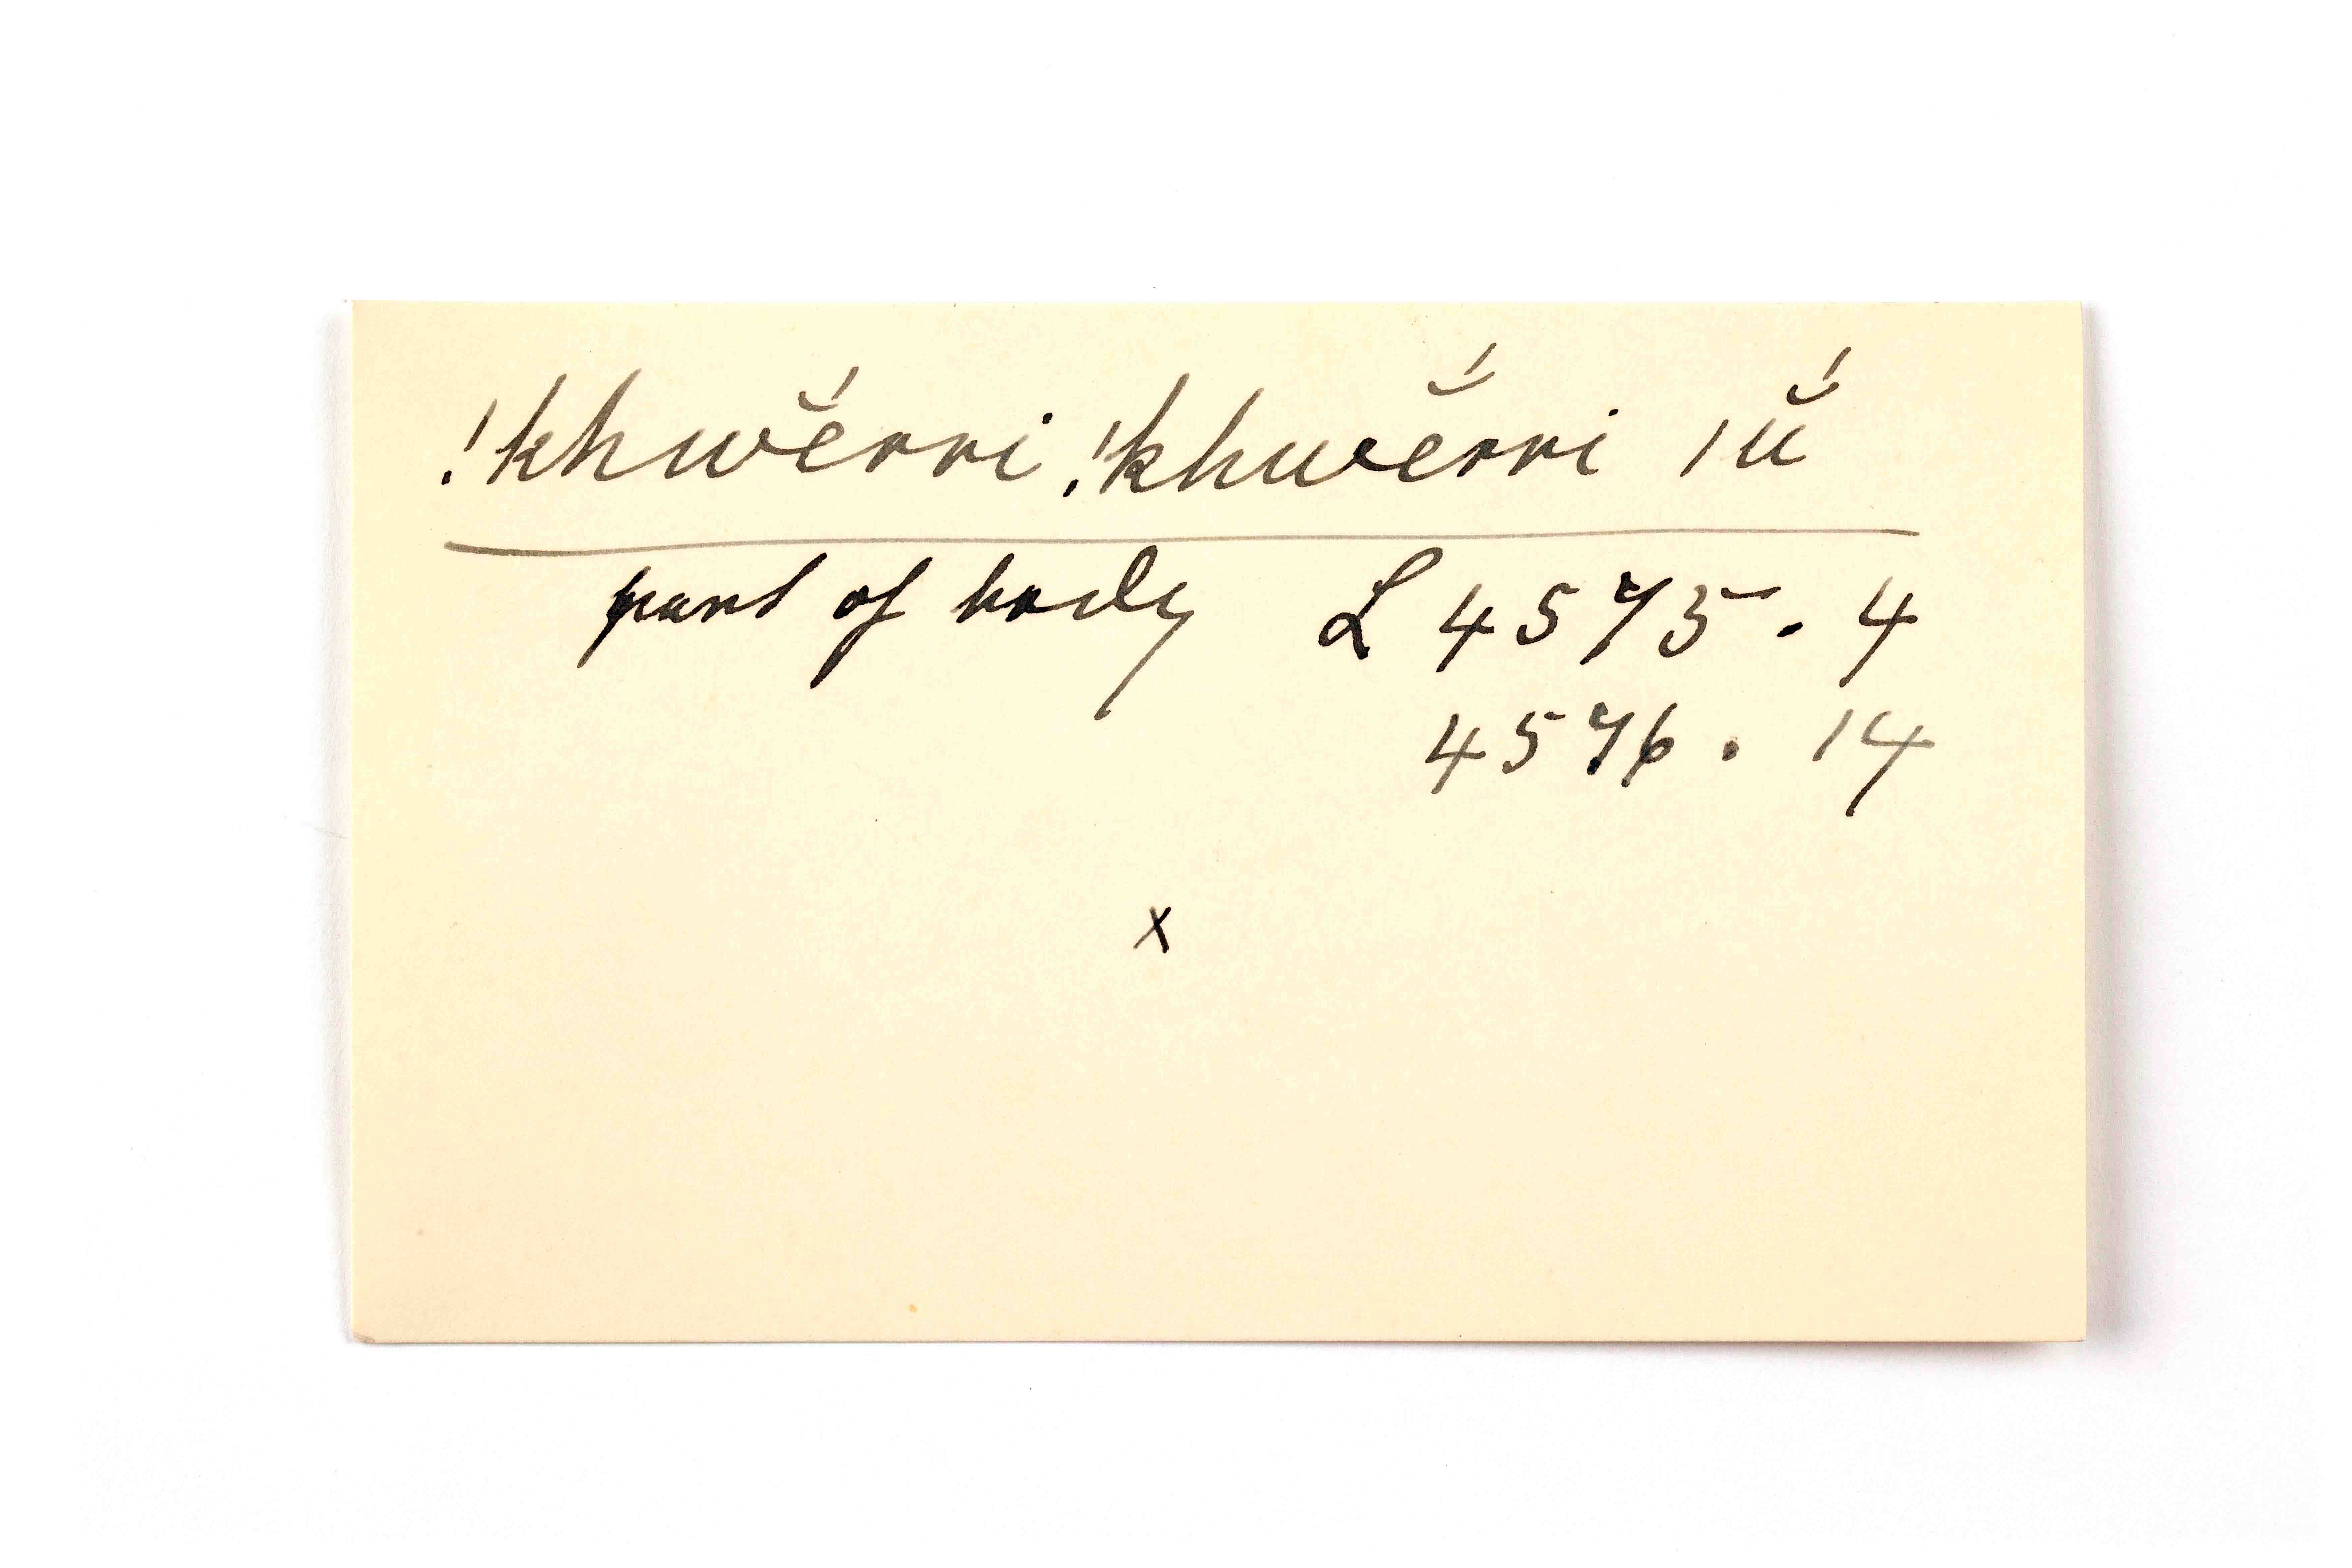 !khwĕ́rri !khwĕ́rri |ŭ́
part of body L 4575 . 4
4576 . 14
x